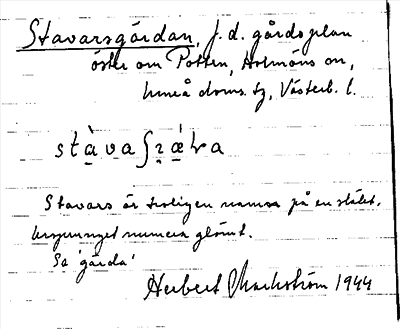 Stavarsgärdan, f. d. gårdsplan
öster om Potten, Holmöns sn,
Umeå doms. tg, Västerb. l.
stàvaʃɿæ̀ɽa
Stavars är troligen namn på en släkt,
ursprunget numera glömt.
Se 'gärda'
Herbert Markström 1944